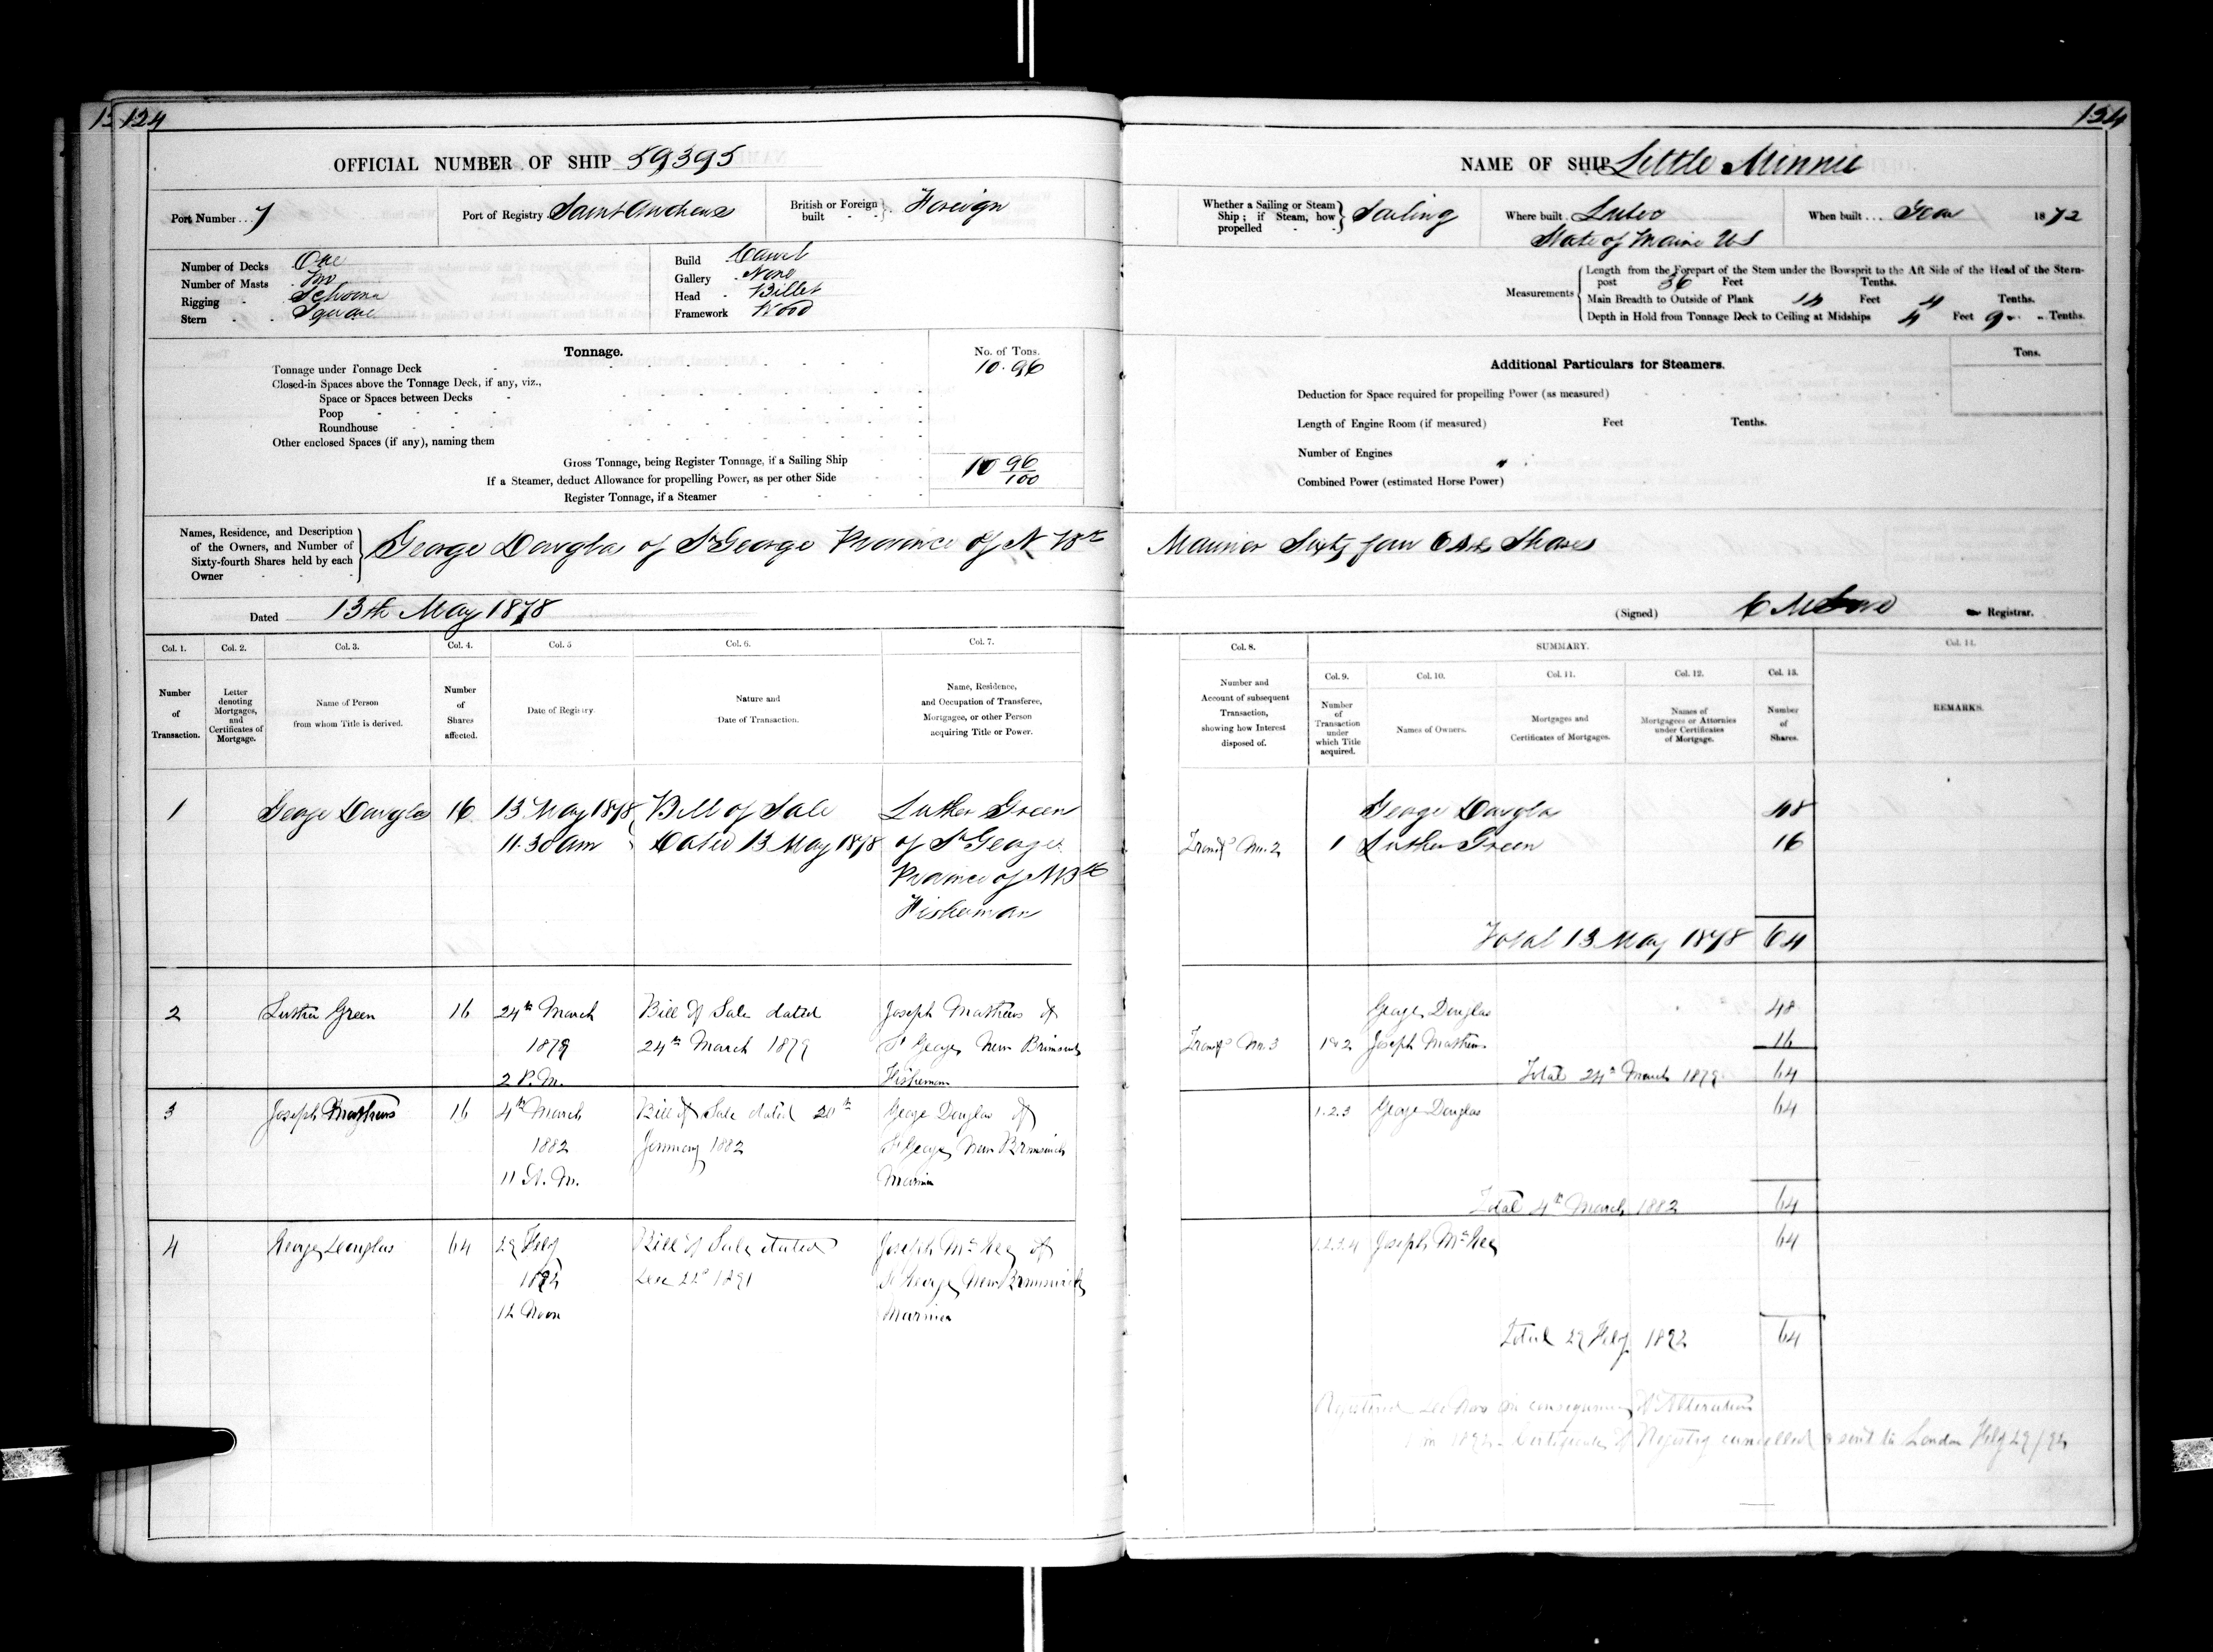 124
124
OFFICIAL NUMBER OF SHIP 59395
Port Number... 7
Port of Registry Saint Andrews
British or Foreign built Foreign
Number of Decks One
Number of Masts Two
Rigging Schooner
Stern Square
Build Carvel
Gallery None
Head Billet
Framework Wood
Tonnage.
No. of Tons.
Tonnage under Tonnage Deck 10.96
Closed-in Spaces above the Tonnage Deck, if any, viz.,
Space or Spaces between Decks
Poop
Roundhouse
Other enclosed Spaces (if any), naming them
Gross Tonnage, being Register Tonnage, if a Sailing Ship 10 96/100
If a Steamer, deduct Allowance for propelling Power, as per other Side
Register Tonnage, if a Steamer
NAME OF SHIP Little Minnie
Whether a Sailing or Steam Ship; if Steam, how propelled Sailing
Where built Lubec
State of Maine US
When built... Year 1872
Measurements
Length from the Forepart of the Stem under the Bowsprit to the Aft Side of the Head of the Stern-
post 36 Feet Tenths.
Main Breadth to Outside of Plank 14 Feet 4 Tenths.
Depth in Hold from Tonnage Deck to Ceiling at Midships 4 Feet 9 Tenths.
Additional Particulars for Steamers.
Tons.
Deduction for Space required for propelling Power (as measured)
Length of Engine Room (if measured) Feet Tenths.
Number of Engines
Combined Power (estimated Horse Power)
Names, Residence, and Description
of the Owners, and Number of
Sixty-fourth Shares held by each
Owner
George Douglas of St George Province of N Bk Mariner Sixty four 64ths Shares
Dated 13th May 1878
(Signed) Registrar.
Col. 1. Col. 2. Col. 3. Col. 4. Col. 5 Col. 6. Col. 7.
Number of Transaction.
Letter denoting Mortgages, and Certificates of Mortgage.
Name of Person from whom Title is derived.
Number of Shares affected.
Date of Registry.
Nature and Date of Transaction.
Name, Residence, and Occupation of Transferee, Mortgagee, or other Person acquiring Title or Power.
Col. 8. SUMMARY. Col. 14.
Col. 9. Col. 10. Col. 11. Col. 12. Col. 13.
Number and Account of subsequent Transaction, showing how Interest disposed of.
Number of Transaction under which Title acquired.
Names of Owners.
Mortgages and Certificates of Mortgages.
Names of Mortgagees or Attornies under Certificates of Mortgage.
Number of Shares.
REMARKS.
1 George Douglas 16 13 May 1878 Bill of Sale Luther Green
11.30 am Dated 13 May 1878 of St George
Province of NBk
Fisherman
George Douglas 48
Transf No. 2 1 Luther Green 16
Total 13 May 1878 64
2 Luther Green 16 24th March Bill of Sale dated Joseph Mathews of
1879 24th March 1879 St George New Brunswick
2 P.M. Fisherman
George Douglas 48
Transf No. 3 1&2 Joseph Mathews 16
Total 24th March 1879 64
3 Joseph Mathews 16 4th March Bill of Sale dated 20th George Douglas of
1882 January 1882 St George New Brunswick
11 A.M. Mariner
1.2.3 George Douglas 64
Total 4th March 1882 64
4 George Douglas 64 29 Feby Bill of Sale dated Joseph McKee of
1892 Dec 22d 1891 St George New Brunswick
12 Noon Mariner
1.2.3.4 Joseph McKee 64
Total 29 Feby 1892 64
Registered de Novo in consequence of Alterations
1 in 1892. Certificate of Registry cancelled & sent to London Feby 29/92